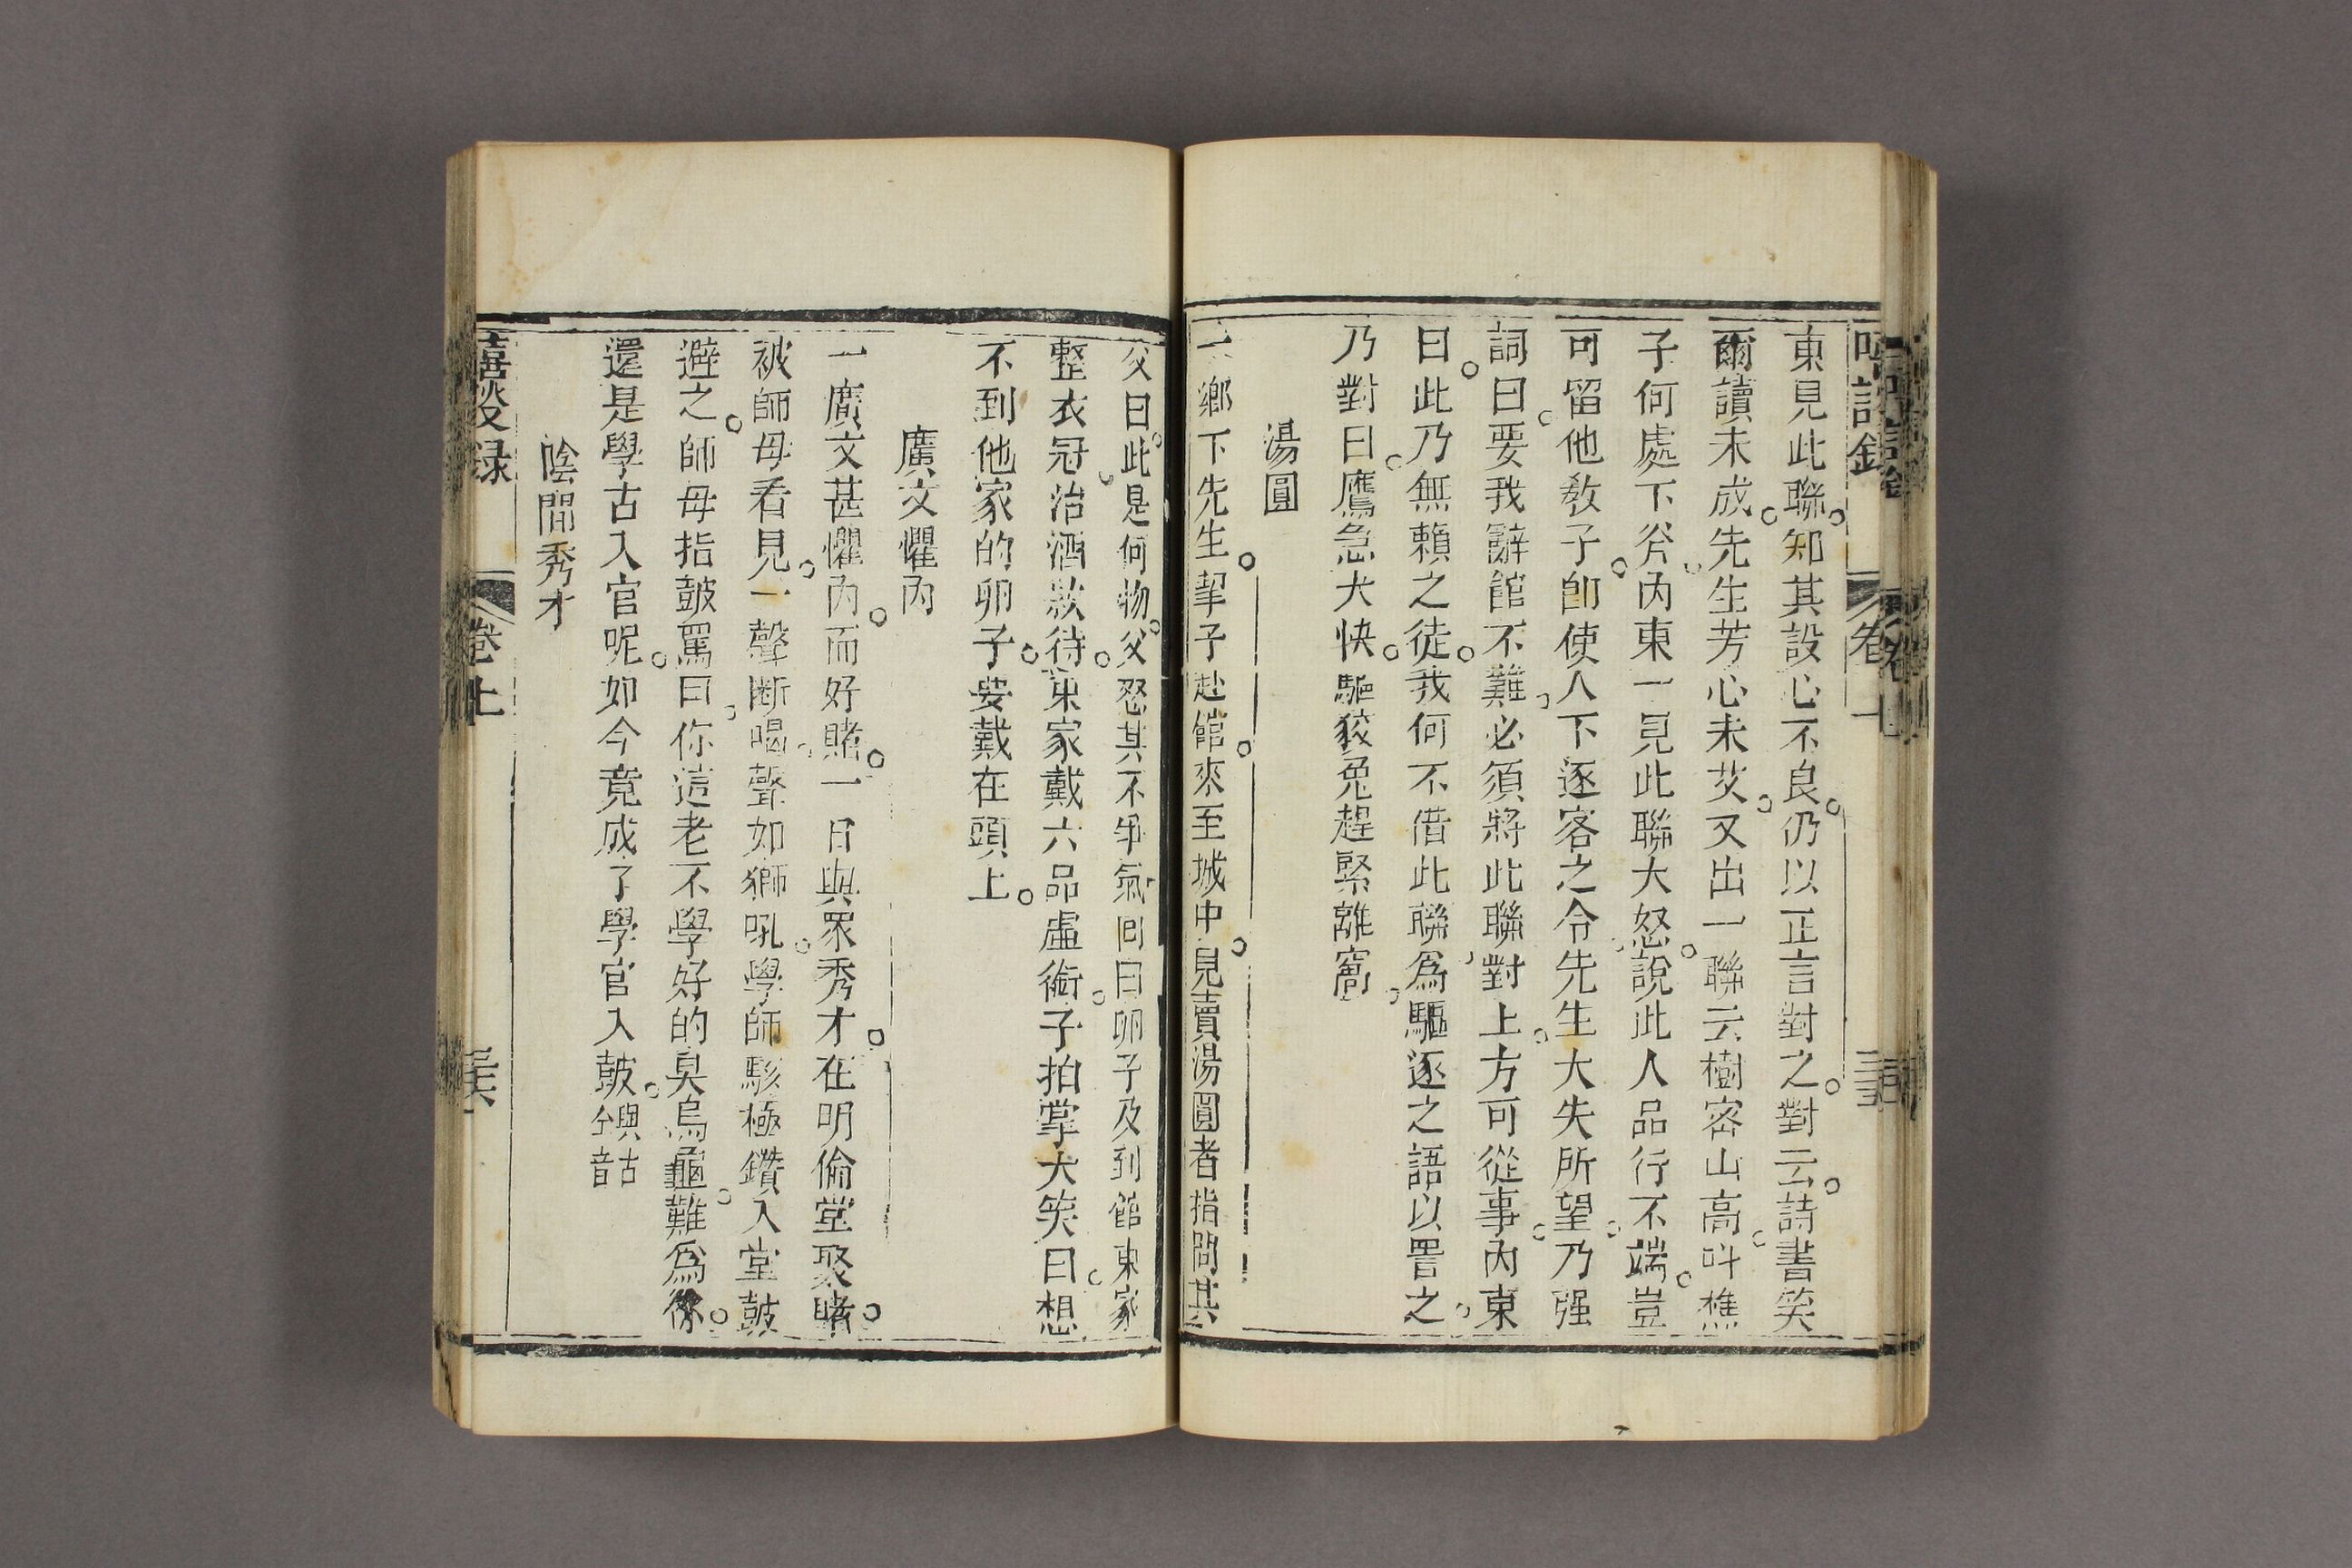 東見此聯知其設心不良仍以正言對之對云詩書笑
爾讀未成先生芳心未艾又出一聯云樹密山高叫樵
子何處下斧內東一見此聯大怒說此人品行不端豈
可留他教子卽使人下逐客之令先生大失所望乃强
詞曰要我辭館不難必須將此聯對上方可從事內東
曰此乃無賴之徒我何不借此聯爲驅逐之語以詈之
乃對曰鷹急犬快驅狡兔趕緊離窩
湯圓
一鄉下先生挈子赴館來至城中見賣湯圓者指問其
父曰此是何物父怒其不爭氣回曰卵子及到館東家
整衣冠治酒款待東家戴六品虛銜子拍掌大笑曰想
不到他家的卵子要戴在頭上
廣文懼內
一廣文甚懼內而好賭一日與眾秀才在明倫堂聚賭
被師母看見一聲斷喝聲如獅吼學師駭極鑽入堂鼓
避之師母指鼓罵曰你這老不學好的臭烏龜難爲你
還是學古入官呢如今竟成了學官入鼓與古仝音
陰間秀才
嘻談錄 卷上